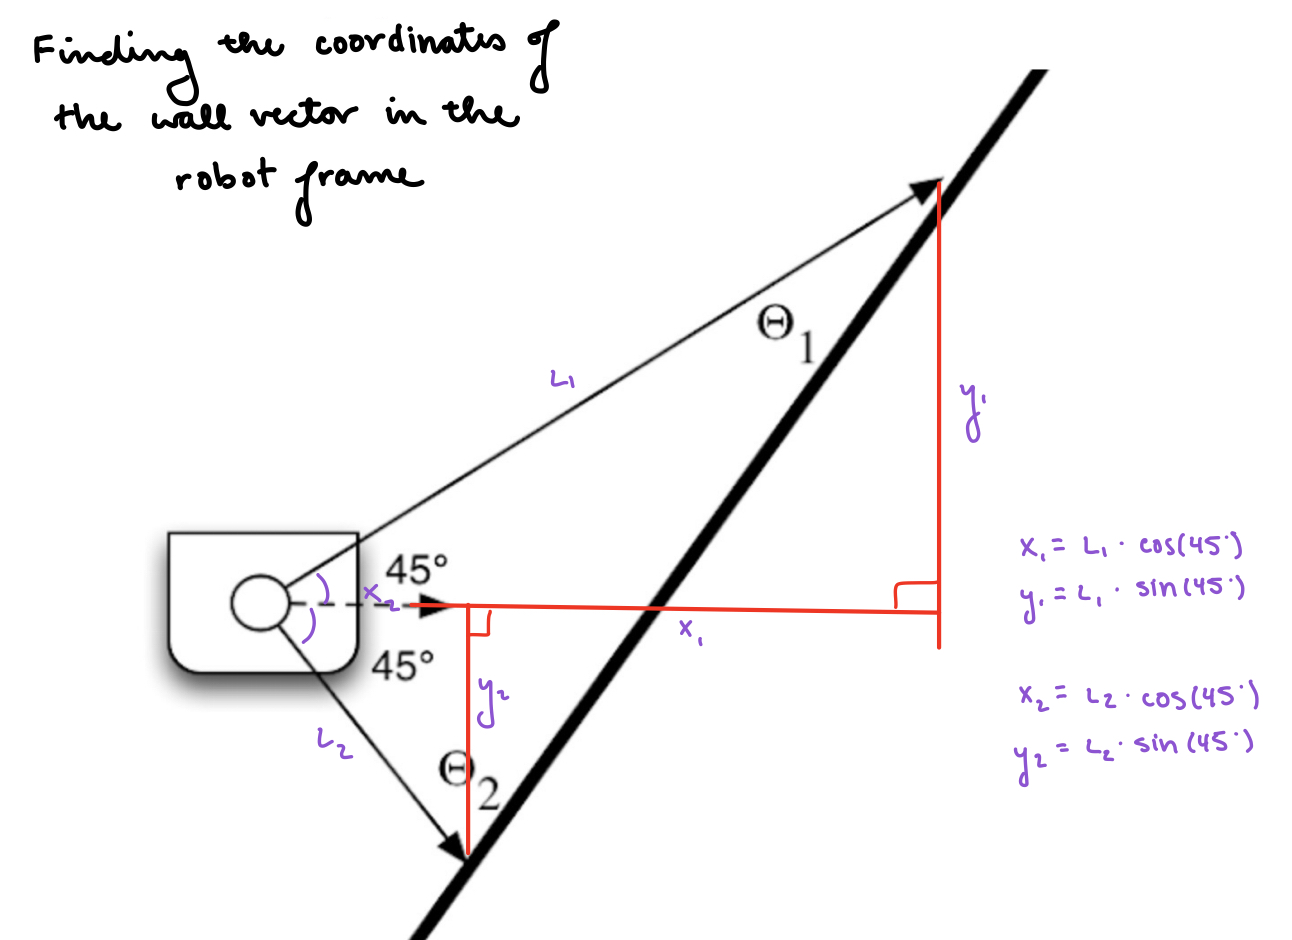 Finding the coordinates of
the wall vector in the
robot frame
Θ1
L1
y1
45°
x2
x1
x1 = L1 · cos(45°)
y1 = L1 · sin(45°)
45°
y2
L2
x2 = L2 · cos(45°)
y2 = L2 · sin(45°)
Θ2